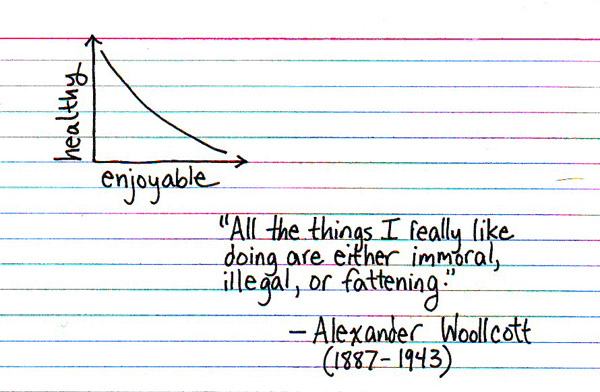 healthy
enjoyable
"All the things I really like
doing are either immoral,
illegal, or fattening."
— Alexander Woollcott
(1887-1943)